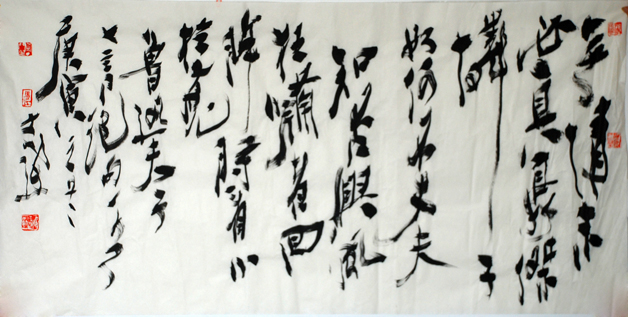 無情未
必真豪傑
憐子
如何不丈夫
知否興風
狂嘯者回
眸時看小
於菟
魯迅夫子
七言絕句
庚寅